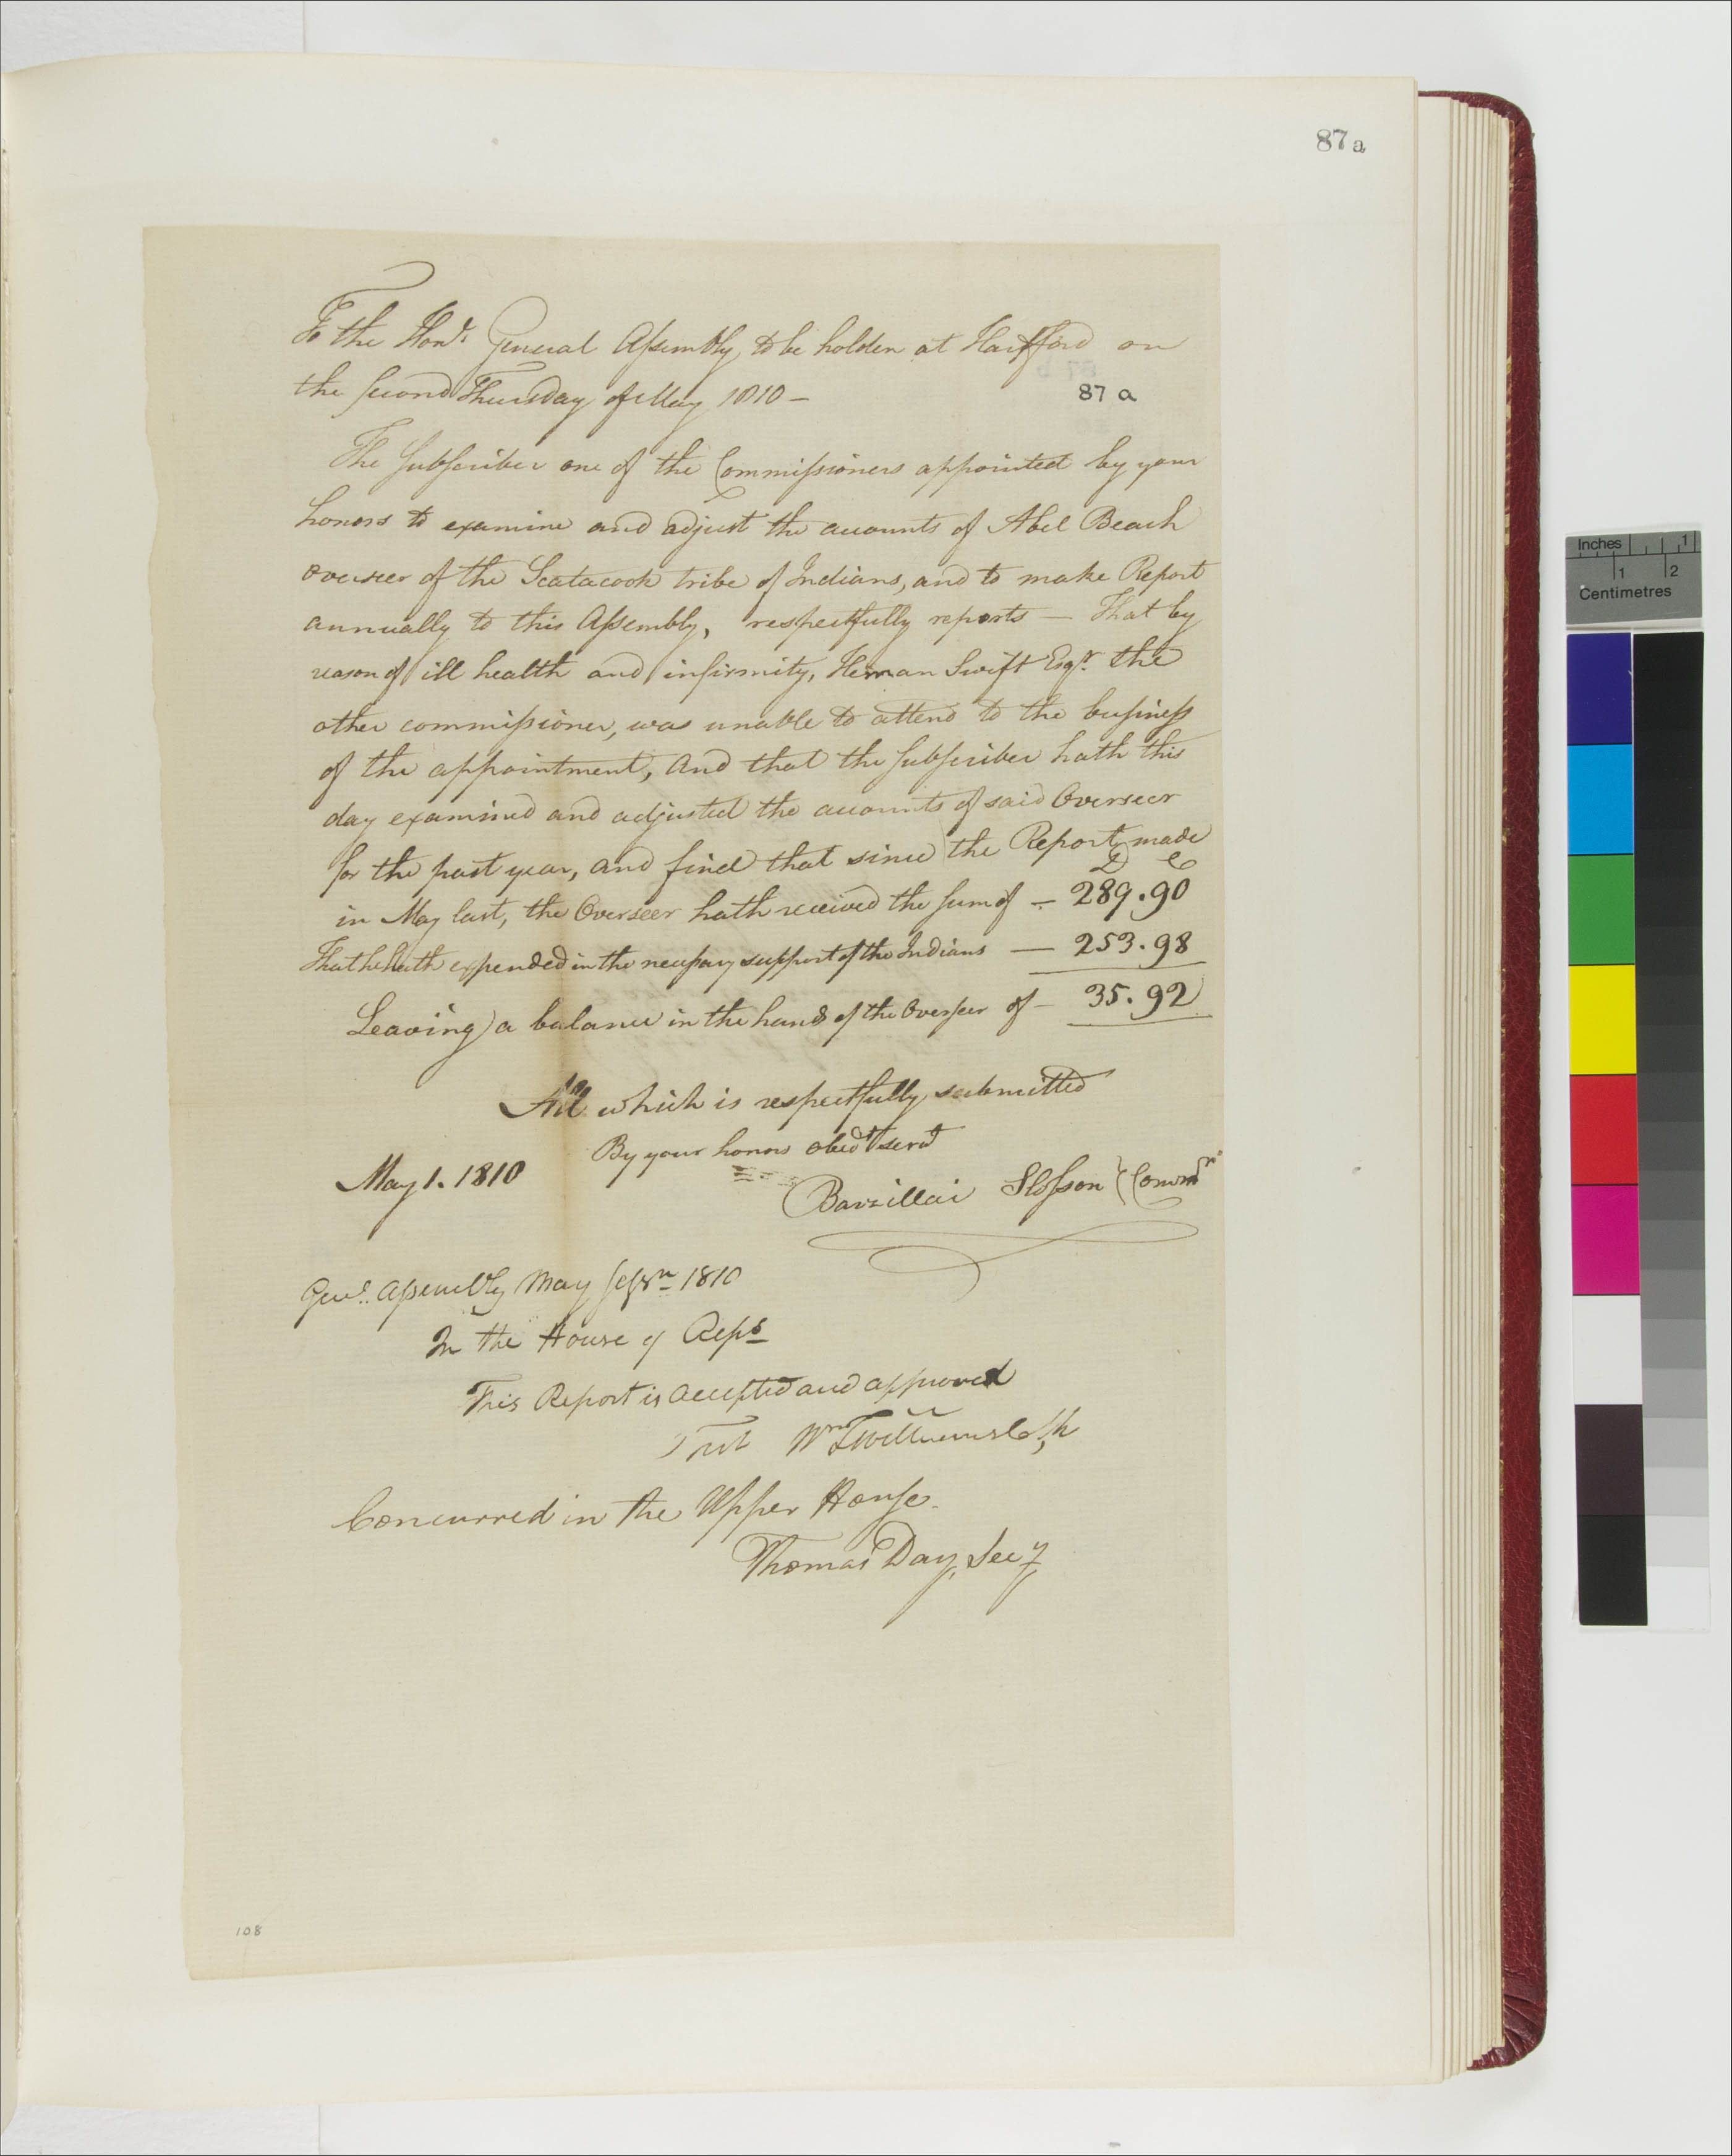 87a
To the Honl. General Assembly, to be holden at Hartford on
the second Thursday of May 1810 –
87 a
The Subscriber one of the Commissioners appointed by your
honors to examine and adjust the accounts of Abel Beach
overseer of the Scatacook tribe of Indians, and to make Report
annually to this Assembly, respectfully reports — That by
reason of ill health and infirmity, Heman Swift Esqr. the
other commissioner, was unable to attend to the business
of the appointment, and that the subscriber hath this
day examined and adjusted the accounts of said Overseer
for the past year, and find that since the Report made
D C
in May last, the Overseer hath received the sum of – 289.90
That he hath expended in the necessary support of the Indians — 253.98
Leaving a balance in the hands of the Overseer of – 35.92
All which is respectfully submitted
By your honors obedt servt
May 1. 1810
Barzillai Slosson } Commr
Genl. Assembly May Sessn 1810
In the House of Reps
This Report is accepted and approved
Test Wm T Williams Clk
Concurred in the Upper House.
Thomas Day, Secy
108
Inches 1
1 2
Centimetres